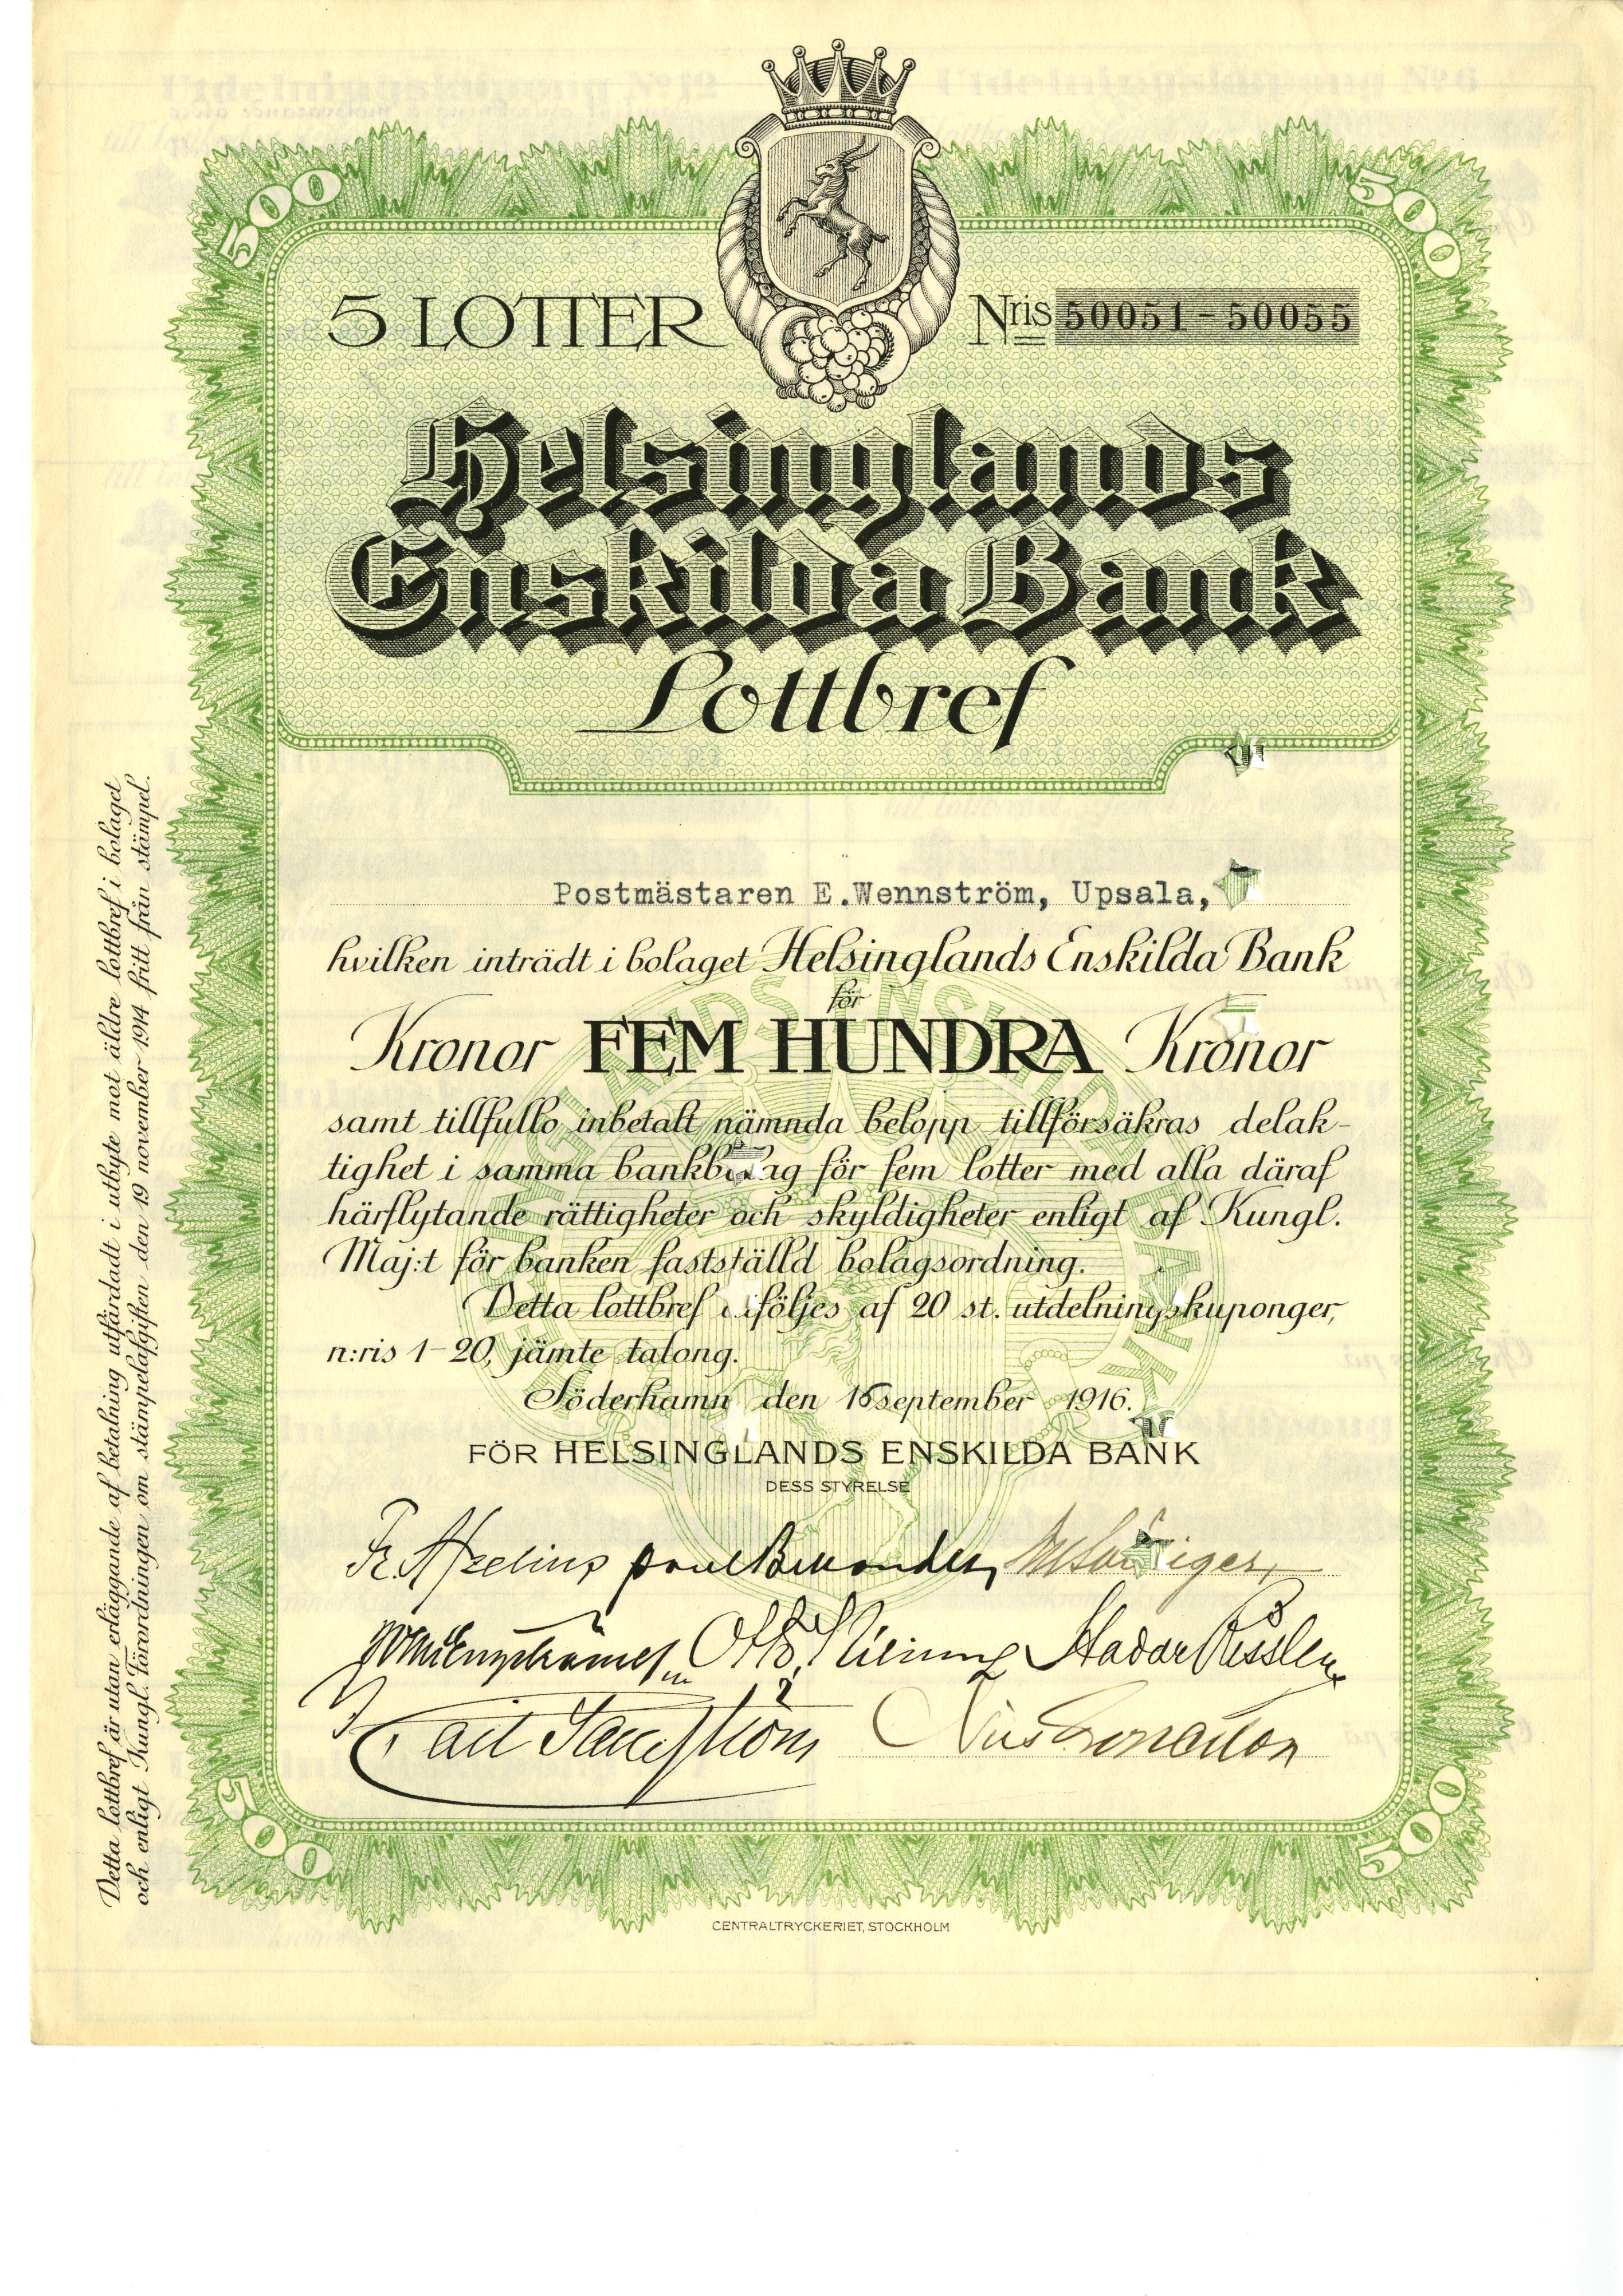 500
500
5 LOTTER
Nris 50051-50055
Helsinglands
Enskilda Bank
Lottbref
Postmästaren E.Wennström, Upsala,
hvilken inträdt i bolaget Helsinglands Enskilda Bank
för
Kronor FEM HUNDRA Kronor
samt tillfullo inbetalt nämnda belopp tillförsäkras delak-
tighet i samma bankbolag för fem lotter med alla däraf
härflytande rättigheter och skyldigheter enligt af Kungl.
Maj:t för banken fastställd bolagsordning.
Detta lottbref åtföljes af 20 st. utdelningskuponger,
n:ris 1-20, jämte talong.
Söderhamn den 15 september 1916.
FÖR HELSINGLANDS ENSKILDA BANK
DESS STYRELSE
Fr. Afzelius
Otto
Hadar Rissler
500
500
CENTRALTRYCKERIET, STOCKHOLM
Detta lottbref är utan erläggande af betalning utfärdadt i utbyte mot äldre lottbref i bolaget
och enligt Kungl. Förordningen om stämpelafgiften den 19 november 1914 fritt från stämpel.
HELSINGLANDS ENSKILDA BANK